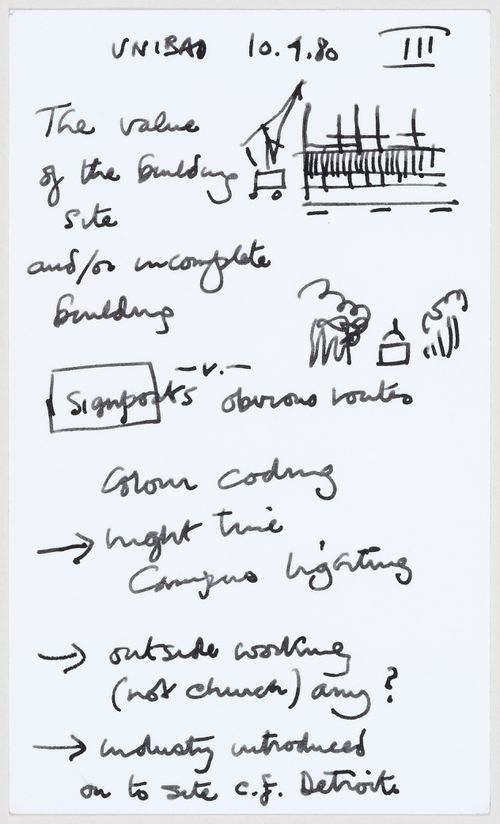 UNIBAD 10.9.80 III
The value
of the building
site
and/or incomplete
building
Signposts - v. - obvious routes
Colour coding
→ night time
Campus lighting
→ outside working
(not church) any ?
→ industry introduced
on to site c.f. Detroit